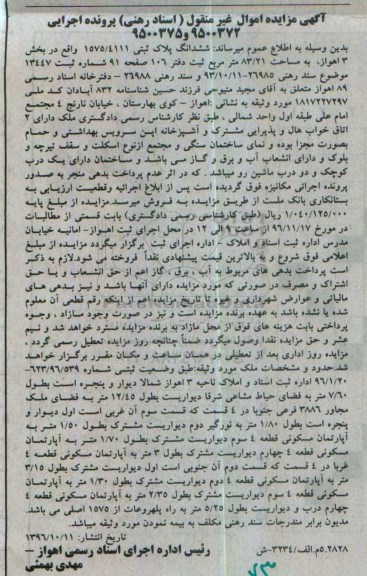 آگهی مزایده اموال غیر منقول ( اسناد رهنی) پرونده اجرایی
۹۵۰۰۳۷۲ و ۹۵۰۰۳۷۵
بدین وسیله به اطلاع عموم میرساند: ششدانگ پلاک ثبتی ۱۵۷۵/۴۱۱۱ واقع در بخش
۳ اهواز، به مساحت ۸۳/۲۱ متر مربع ثبت دفتر ۱۰۶ صفحه ۹۱ شماره ثبت ۱۳۴۴۷
موضوع سند رهنی ۲۶۹۸۵-۹۳/۱۰/۱۱ و سند رهنی ۲۶۹۸۸ - دفترخانه اسناد رسمی
۸۹ اهواز متعلق به آقای مجید متبوحی فرزند حسین شناسنامه ۸۳۲ آبادان کد ملی
۱۸۱۷۲۲۷۲۹۷ مورد وثیقه به نشانی :اهواز - کوی بهارستان ، خیابان نارنج ٤ مجتمع
امام علی طبقه اول واحد شمالی ، طبق نظر کارشناس رسمی دادگستری ملک دارای ۲
اتاق خواب هال و پذیرایی مشترک و آشپزخانه اپن سرویس بهداشتی و حمام
بصورت مجزا بوده و نمای ساختمان سنگی و مجتمع ازنوع اسکلت و سقف تیرچه و
بلوک و دارای انشعاب آب و برق و گاز می باشد و ساختمان دارای یک درب
کوچک و دو درب ماشین رو میباشد . که در اثر عدم پرداخت بدهی منجر به صدور
پرونده اجرائی مکانیزه فوق گردیده است پس از ابلاغ اجرائیه وقطعیت ارزیابی به
بستانکاری بانک ملت از طریق مزایده به فروش میرسد.مزایده از مبلغ پایه
۱/۰۴۰/۱۲۵/۰۰۰ ریال (طبق کارشناسی رسمی دادگستری) بابت قسمتی از مطالبات
در مورخ ۹۶/۱۱/۱۷ از ساعت ۹ الی ۱۲ در محل اجرای ثبت اهواز- امانیه خیابان
مدرس اداره ثبت اسناد و املاک - اداره اجرای ثبت برگزار میگردد مزایده از مبلغ
اعلامی فوق شروع و به بالاترین قیمت پیشنهادی نقداً فروخته می شود.لازم به ذکر
است پرداخت بدهی های مربوط به آب ، برق ، گاز اعم از حق انشعاب و یا حق
اشتراک و مصرف در صورتی که مورد مزایده دارای آنها باشد و نیز بدهی های
مالیاتی و عوارض شهرداری و غیره تا تاریخ مزایده اعم از اینکه رقم قطعی آن معلوم
شده یا نشده باشد به عهده برنده مزایده است و نیز در صورت وجود مازاد ، وجوه
پرداختی بابت هزینه های فوق از محل مازاد به برنده مزایده مسترد خواهد شد و نیم
عشر و حق مزایده نقدا وصول میگردد ضمناً چنانچه روز مزایده تعطیل رسمی گردد ،
مزایده روز اداری بعد از تعطیلی در همان ساعت و مکان مقرر برگزار خواهد
شد.حدود و مشخصات ملک مورد وثیقه:طبق وضعیت ثبتی شماره ۶۲۳/۹۶/۵۳۹-
۹۶/۱/۲۰ اداره ثبت اسناد و املاک ناحیه ۳ اهواز شمالا دیوار و پنجره است بطول
۷/۶۰ متر به فضای حیاط مشاعی شرقا دیواریست بطول ۱۲/۴۵ متر به فضای ملک
مجاور ۳۸۸۶ فرعی جنوبا در ٤ قسمت که قسمت سوم آن غربی است اول دیوار و
پنجره است بطول ۱/۸۰ متر به نورگیر دوم دیواریست مشترک بطول ۱/۵۰ متر به
آپارتمان مسکونی قطعه ٤ سوم دیواریست مشترک بطول ۱/۷۰ متر به آپارتمان
مسکونی قطعه ٤ چهارم دیواریست مشترک بطول ۳ متر به آپارتمان مسکونی قطعه ٤
غربا در ٤ قسمت که قسمت دوم آن جنوبی است اول دیواریست مشترک بطول ۳/۱۵
متر به آپارتمان مسکونی قطعه ٤ دوم دیواریست مشترک بطول ۱/۳۰ متر به آپارتمان
مسکونی قطعه ٤ سوم دیواریست مشترک بطول ۲/۳۵ متر به آپارتمان مسکونی قطعه ٤
چهارم درب و دیواریست بطول ۵/۲۵ متر به راه پله روعات از ۱۵۷۵ اصلی می باشد.
مدیون برابر مندرجات سند رهنی مکلف به بیمه نمودن مورد وثیقه میباشد.
تاریخ انتشار: ۱۳۹۶/۱۰/۱۱
۵.۲۸۲۸م.الف/۳۲۳۴-ش
رئیس اداره اجرای اسناد رسمی اهواز –
مهدی بهمئی
۷۳